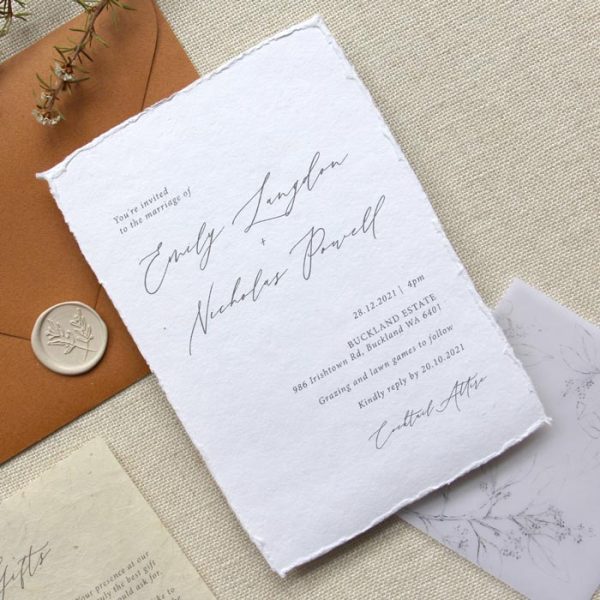 You're invited
to the marriage of
Emily Langdon
+
Nicholas Powell
28.12.2021 | 4pm
BUCKLAND ESTATE
986 Irishtown Rd, Buckland WA 6401
Grazing and lawn games to follow
Kindly reply by 20.10.2021
Cocktail Attire
Gifts
Your presence at our
only the best gift
could ask for.